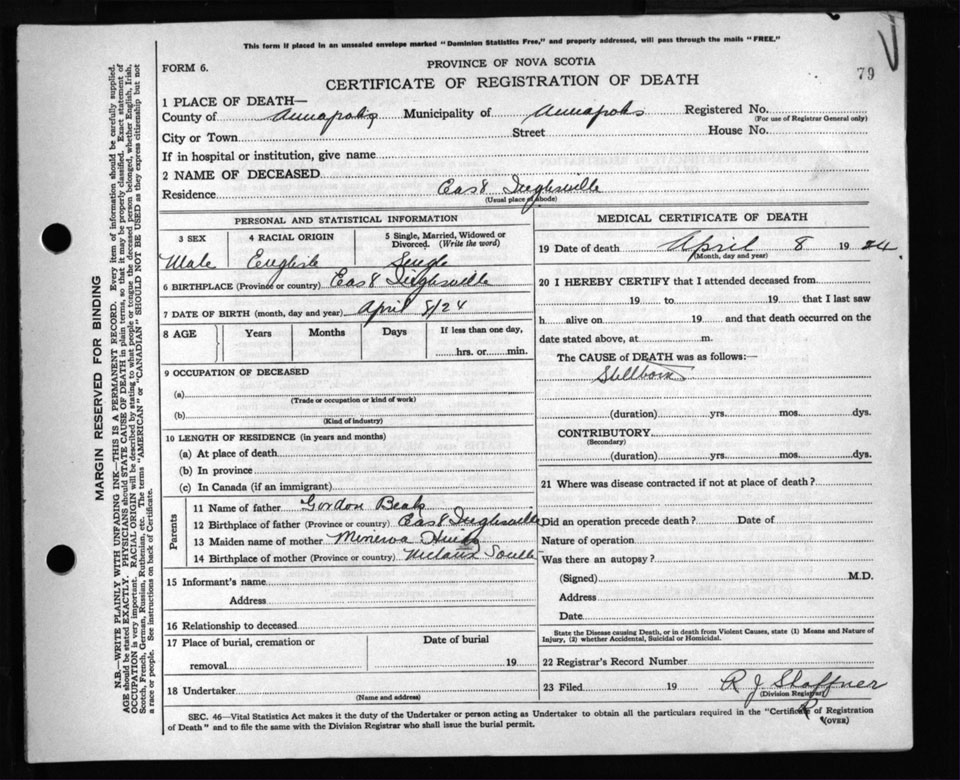 This form if placed in an unsealed envelope marked "Dominion Statistics Free," and properly addressed, will pass through the mails "FREE."
79
FORM 6.
PROVINCE OF NOVA SCOTIA
CERTIFICATE OF REGISTRATION OF DEATH
1 PLACE OF DEATH—
County of Annapolis Municipality of Annapolis Registered No.
(For use of Registrar General only)
City or Town Street House No.
If in hospital or institution, give name
2 NAME OF DECEASED
Residence East Inglisville
(Usual place of abode)
PERSONAL AND STATISTICAL INFORMATION
3 SEX 4 RACIAL ORIGIN 5 Single, Married, Widowed or Divorced. (Write the word)
Male English Single
6 BIRTHPLACE (Province or country) East Inglisville
7 DATE OF BIRTH (month, day and year) April 8/24
8 AGE Years Months Days If less than one day,
hrs. or min.
9 OCCUPATION OF DECEASED
(a)
(Trade or occupation or kind of work)
(b)
(Kind of industry)
10 LENGTH OF RESIDENCE (in years and months)
(a) At place of death
(b) In province
(c) In Canada (if an immigrant)
Parents
11 Name of father Gordon Beals
12 Birthplace of father (Province or country) East Inglisville
13 Maiden name of mother Minerva
14 Birthplace of mother (Province or country) Nictaux South
15 Informant's name
Address
16 Relationship to deceased
17 Place of burial, cremation or Date of burial
removal 19
18 Undertaker
(Name and address)
MEDICAL CERTIFICATE OF DEATH
19 Date of death April 8 19 24
(Month, day and year)
20 I HEREBY CERTIFY that I attended deceased from
19 to 19 that I last saw
h alive on 19 and that death occurred on the
date stated above, at m.
The CAUSE of DEATH was as follows:—
Stillborn
(duration) yrs. mos. dys.
CONTRIBUTORY
(Secondary)
(duration) yrs. mos. dys.
21 Where was disease contracted if not at place of death?
Did an operation precede death? Date of
Nature of operation
Was there an autopsy?
(Signed) M.D.
Address
Date
State the Disease causing Death, or in death from Violent Causes, state (1) Means and Nature of
Injury, (2) whether Accidental, Suicidal or Homicidal.
22 Registrar's Record Number
23 Filed 19 R J Shaffner
(Division Registrar)
SEC. 46—Vital Statistics Act makes it the duty of the Undertaker or person acting as Undertaker to obtain all the particulars required in the "Certificate of Registration
of Death" and to file the same with the Division Registrar who shall issue the burial permit.
(OVER)
MARGIN RESERVED FOR BINDING
N.B.—WRITE PLAINLY WITH UNFADING INK—THIS IS A PERMANENT RECORD. Every item of information should be carefully supplied.
AGE should be stated EXACTLY. PHYSICIANS should STATE CAUSE OF DEATH in plain terms, so that it may be properly classified. Exact statement of
OCCUPATION is very important. RACIAL ORIGIN will be described by stating to what people or tongue the deceased person belonged, whether English, Irish,
Scotch, French, German, Russian, Ruthenian, etc. The terms "AMERICAN" or "CANADIAN" SHOULD NOT BE USED as they express citizenship but not
a race or people. See instructions on back of Certificate.